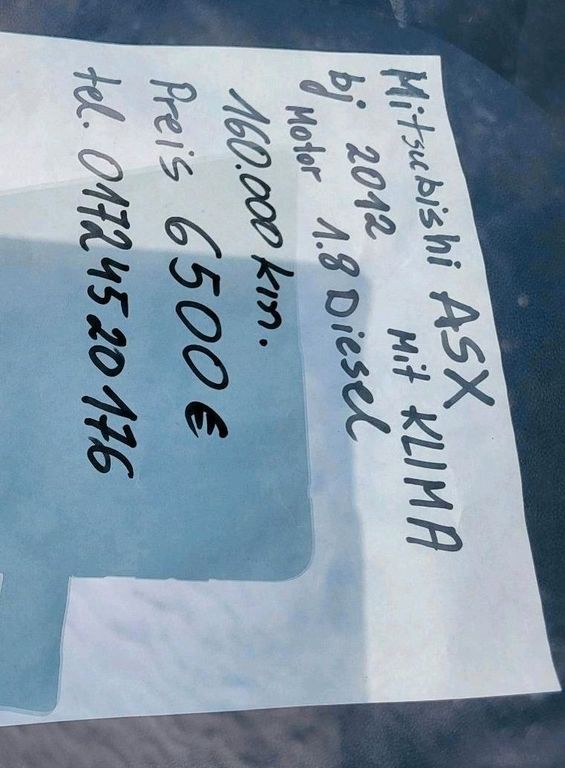 Mitsubishi ASX
bj 2012 Mit KLIMA
Motor 1.8 Diesel
160.000 km.
Preis 6500 €
tel. 0172 4520176